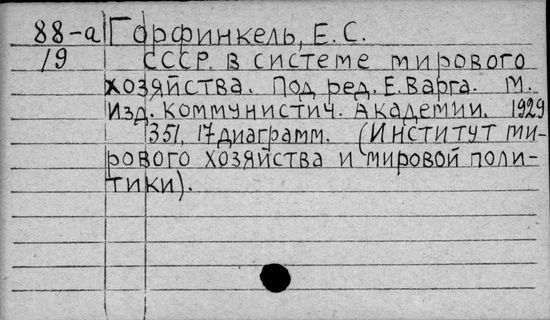 88-а Горфинкель, Е. С.
19 СССР. в системе мирового
хозяйства. Под ред. Е. Варга. М.
Изд. коммунистич. Академии. 1929
351, 17 диаграмм. (Институт ми-
рового хозяйства и мировой поли-
тики).